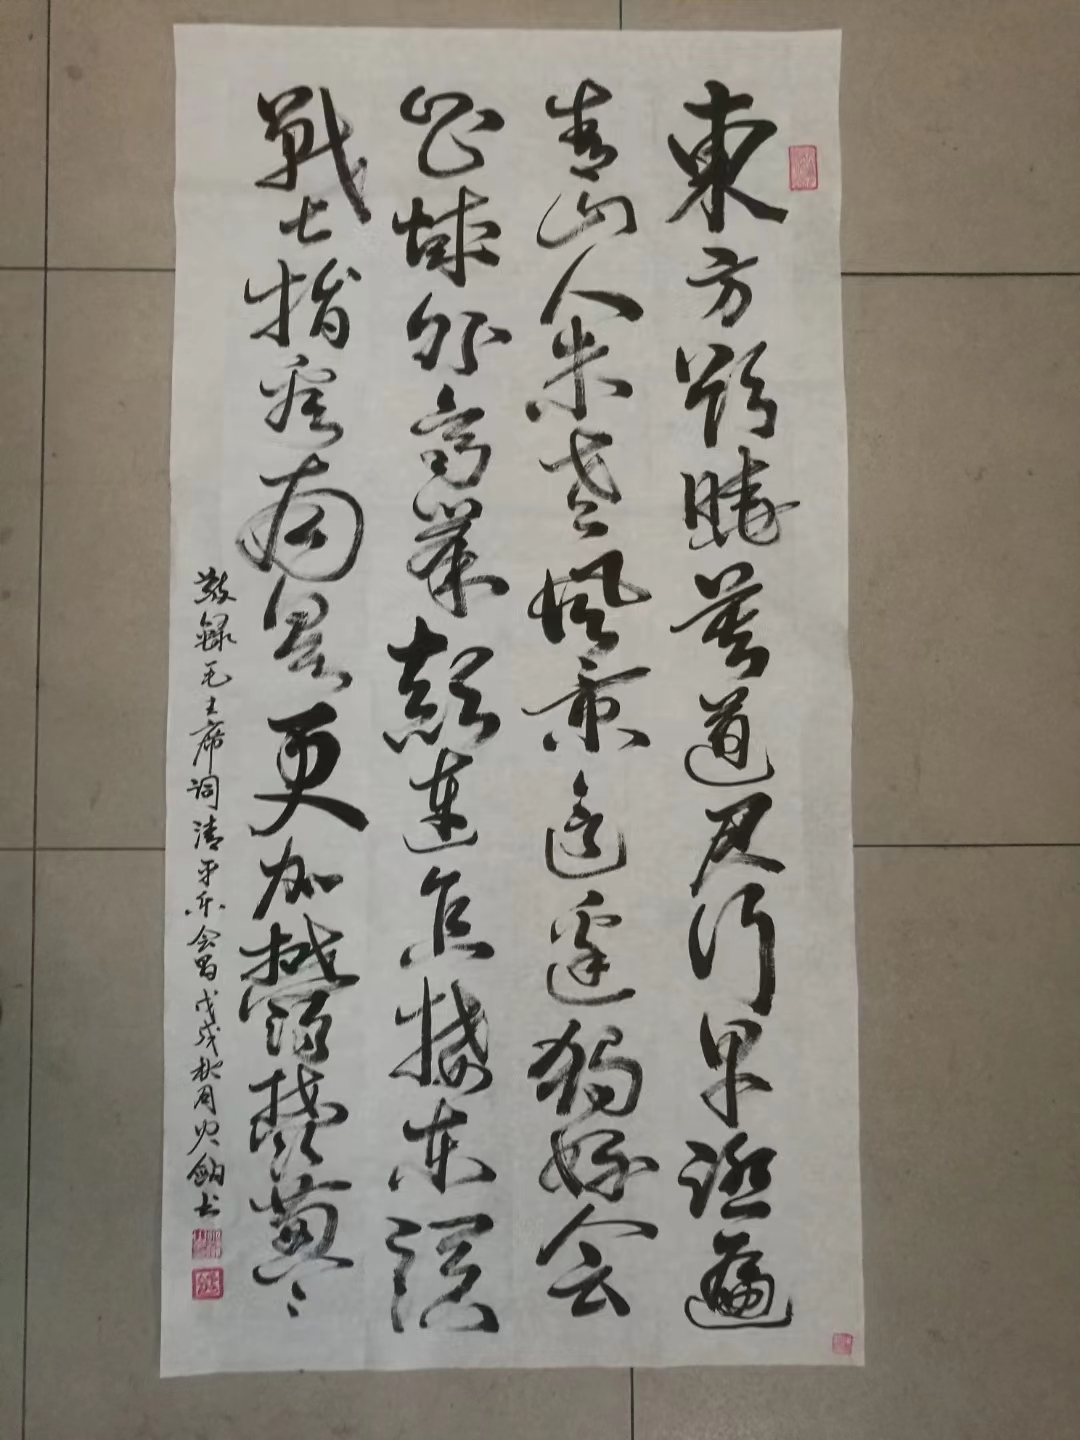 東方欲曉莫道君行早踏遍
青山人未老風景這邊獨好会
昌城外高峯顛連直接東溟
戰士指看南粵更加鬱鬱蔥々
敬録毛主席詞清平乐会昌戊戌秋月书